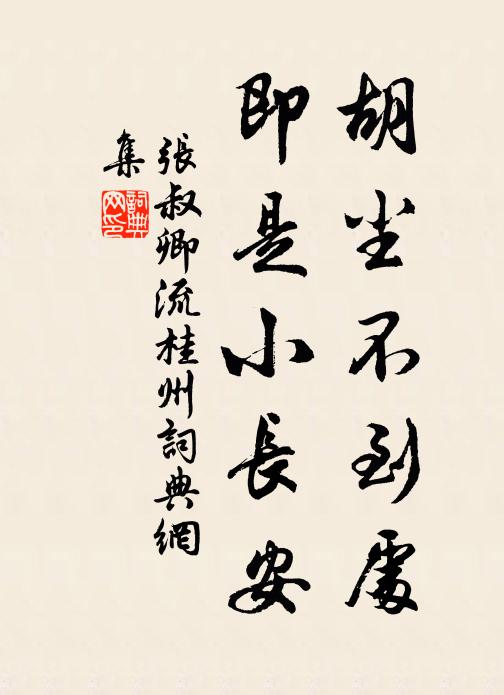 胡尘不到處
即是小長安
張叔卿流桂州詞典網
集
詞典
网印